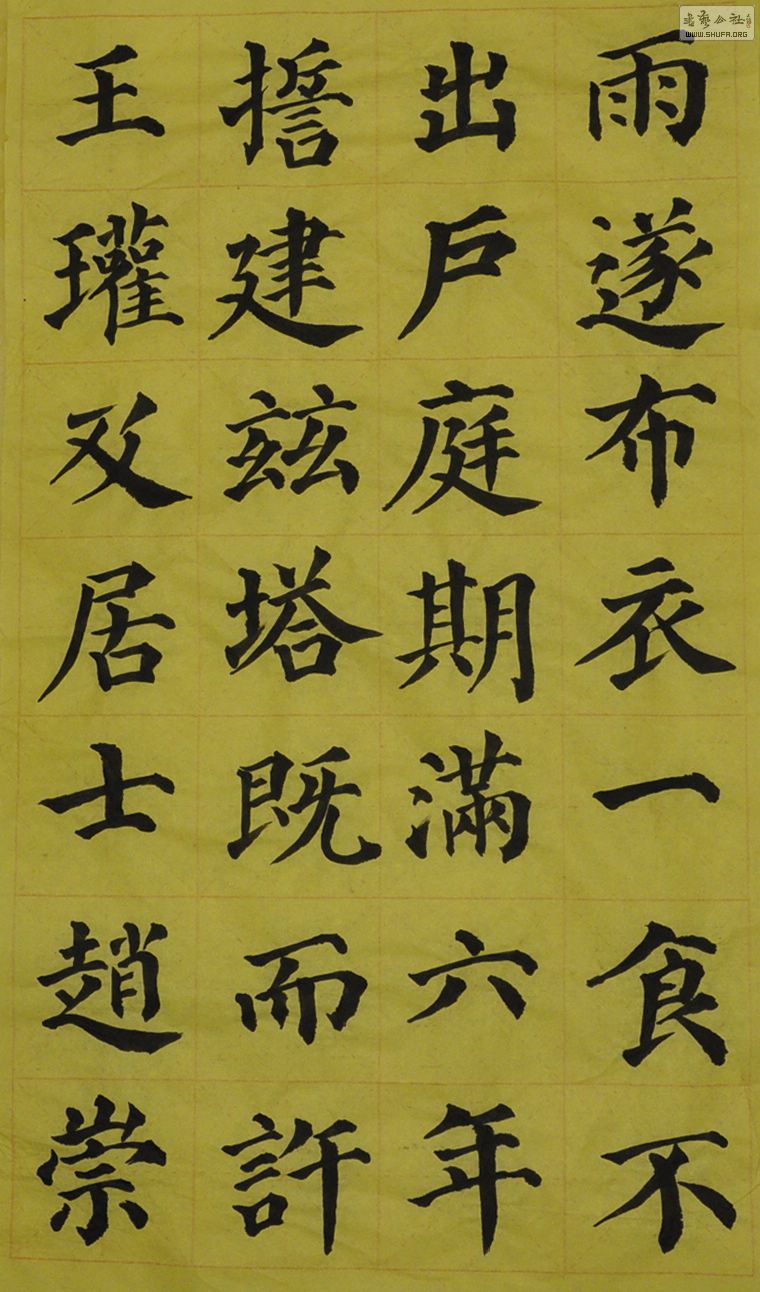 雨遂布衣一食不
出戶庭期滿六年
誓建茲塔既而許
王瓘及居士趙崇
書藝公社
WWW.SHUFA.ORG